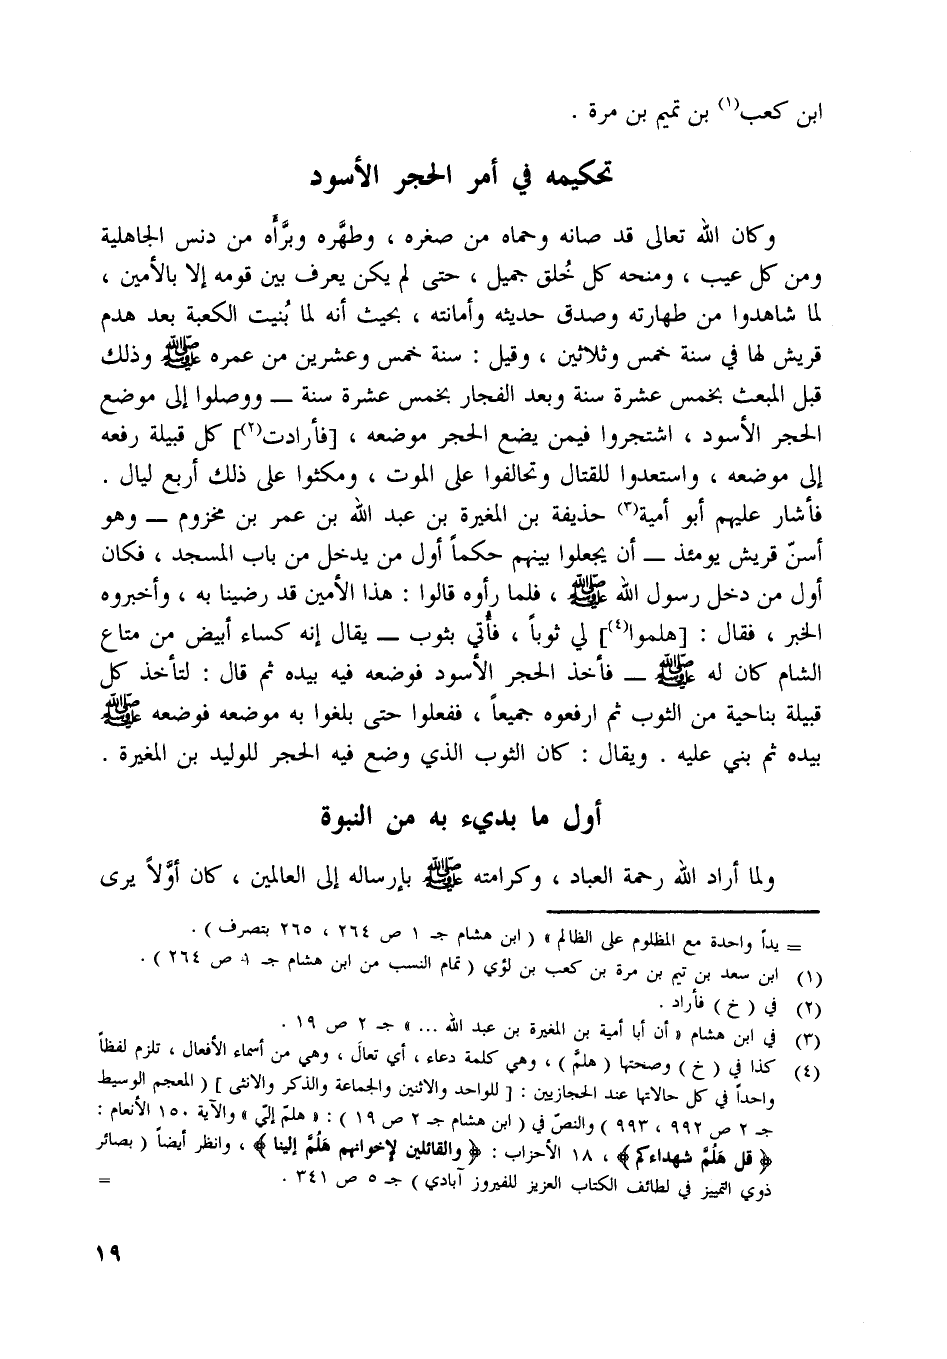 ابن كعب(١) بن تميم بن مرة .
تحكيمه في أمر الحجر الأسود
وكان الله تعالى قد صانه وحماه من صغره ، وطهَّره وبرَّأه من دنس الجاهلية
ومن كل عيب ، ومنحه كل خُلق جميل ، حتى لم يكن يعرف بين قومه إلا بالأمين ،
لما شاهدوا من طهارته وصدق حديثه وأمانته ، بحيث أنه لما بُنيت الكعبة بعد هدم
قريش لها في سنة خمس وثلاثين ، وقيل : سنة خمس وعشرين من عمره ﷺ وذلك
قبل المبعث بخمس عشرة سنة وبعد الفجار بخمس عشرة سنة — ووصلوا إلى موضع
الحجر الأسود ، اشتجروا فيمن يضع الحجر موضعه ، [فأرادت(٢)] كل قبيلة رفعه
إلى موضعه ، واستعدوا للقتال وتحالفوا على الموت ، ومكثوا على ذلك أربع ليال .
فأشار عليهم أبو أمية(٣) حذيفة بن المغيرة بن عبد الله بن عمر بن مخزوم — وهو
أسنّ قريش يومئذ — أن يجعلوا بينهم حكماً أول من يدخل من باب المسجد ، فكان
أول من دخل رسول الله ﷺ ، فلما رأوه قالوا : هذا الأمين قد رضينا به ، وأخبروه
الخبر ، فقال : [هلموا(٤)] لي ثوباً ، فأُتي بثوب — يقال إنه كساء أبيض من متاع
الشام كان له ﷺ — فأخذ الحجر الأسود فوضعه فيه بيده ثم قال : لتأخذ كل
قبيلة بناحية من الثوب ثم ارفعوه جميعاً ، ففعلوا حتى بلغوا به موضعه فوضعه ﷺ
بيده ثم بني عليه . ويقال : كان الثوب الذي وضع فيه الحجر للوليد بن المغيرة .
أول ما بديء به من النبوة
ولما أراد الله رحمة العباد ، وكرامته ﷺ بإرساله إلى العالمين ، كان أوَّلاً يرى
= يداً واحدة مع المظلوم على الظالم » ( ابن هشام جـ ١ ص ٢٦٤ ، ٢٦٥ بتصرف ) .
(١) ابن سعد بن تيم بن مرة بن كعب بن لؤي ( تمام النسب من ابن هشام جـ ١ ص ٢٦٤ ) .
(٢) في ( خ ) فأراد .
(٣) في ابن هشام « أن أبا أمية بن المغيرة بن عبد الله ... » جـ ٢ ص ١٩ .
(٤) كذا في ( خ ) وصحتها ( هلمّ ) ، وهي كلمة دعاء ، أي تعالَ ، وهي من أسماء الأفعال ، تلزم لفظاً
واحداً في كل حالاتها عند الحجازيين : [ للواحد والاثنين والجماعة والذكر والانثى ] ( المعجم الوسيط
جـ ٢ ص ٩٩٢ ، ٩٩٣ ) والنصّ في ( ابن هشام جـ ٢ ص ١٩ ) : « هلمّ إليّ » والآية ١٥٠ الأنعام :
﴿ قل هَلُمَّ شهداءكم ﴾ ، ١٨ الأحزاب : ﴿ والقائلين لإخوانهم هَلُمَّ إلينا ﴾ ، وانظر أيضاً ( بصائر
ذوي التمييز في لطائف الكتاب العزيز للفيروز آبادي ) جـ ٥ ص ٣٤١ . =
١٩